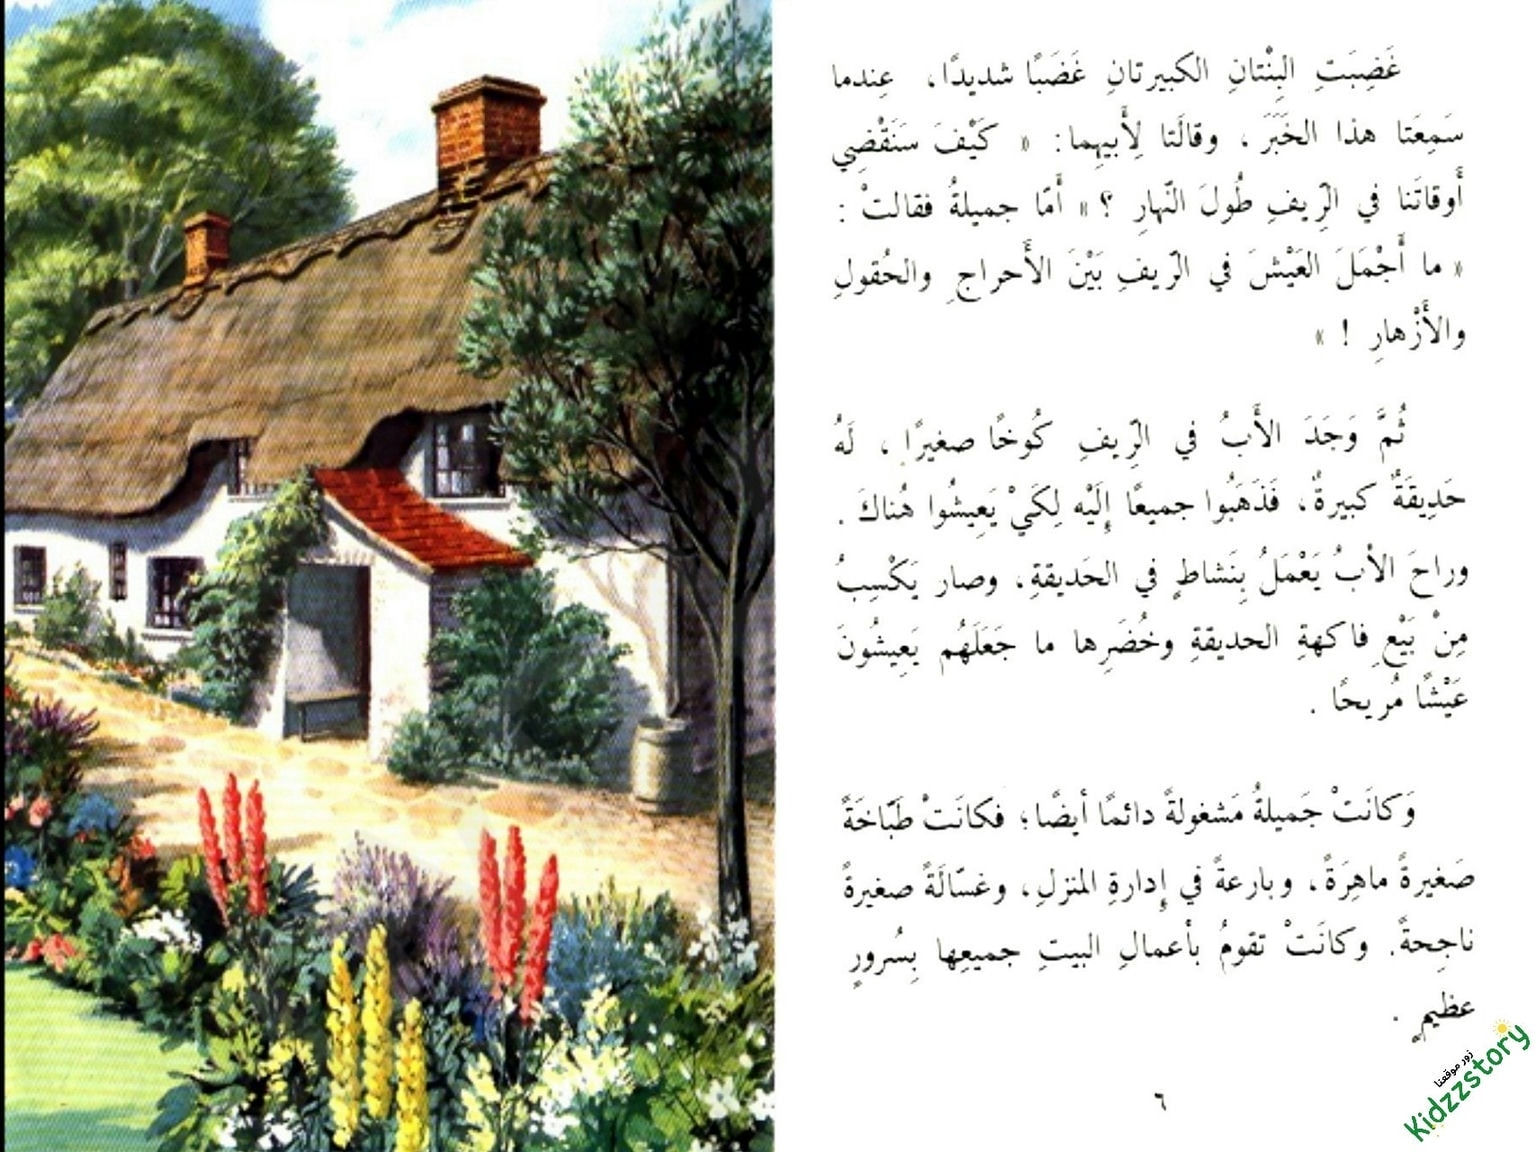 غَضِبَتِ البِنْتانِ الكبيرتانِ غَضَبًا شديدًا، عِندما
سَمِعَتا هذا الخَبَرَ، وقالَتا لِأَبيهِما: « كَيْفَ سَنَقْضِي
أَوقاتَنا في الرّيفِ طُولَ النّهارِ ؟ » أَمّا جميلةُ فقالتْ :
« ما أَجْمَلَ العَيْشَ في الرّيفِ بَيْنَ الأَحراجِ والحُقولِ
والأَزْهارِ ! »
ثُمَّ وَجَدَ الأَبُ في الرّيفِ كُوخًا صغيرًا، لَهُ
حَدِيقَةٌ كبيرةٌ، فَذَهَبُوا جميعًا إِلَيْه لِكَيْ يَعِيشُوا هُناكَ .
وراحَ الأبُ يَعْمَلُ بِنَشاطٍ في الحَديقةِ، وصار يَكْسِبُ
مِنْ بَيْعِ فاكهةِ الحديقةِ وخُضَرِها ما جَعَلَهُم يَعِيشُونَ
عَيْشًا مُريحًا .
وَكانَتْ جَميلةُ مَشغولةً دائمًا أيضًا؛ فكانَتْ طَبّاخَةً
صَغيرةً ماهِرَةً، وبارعةً في إِدارةِ المنزلِ، وغسّالَةً صغيرةً
ناجِحةً. وكانَتْ تقومُ بأعمالِ البيتِ جميعِها بِسُرورٍ
عظيمٍ .
٦
زور موقعنا
Kidzzstory